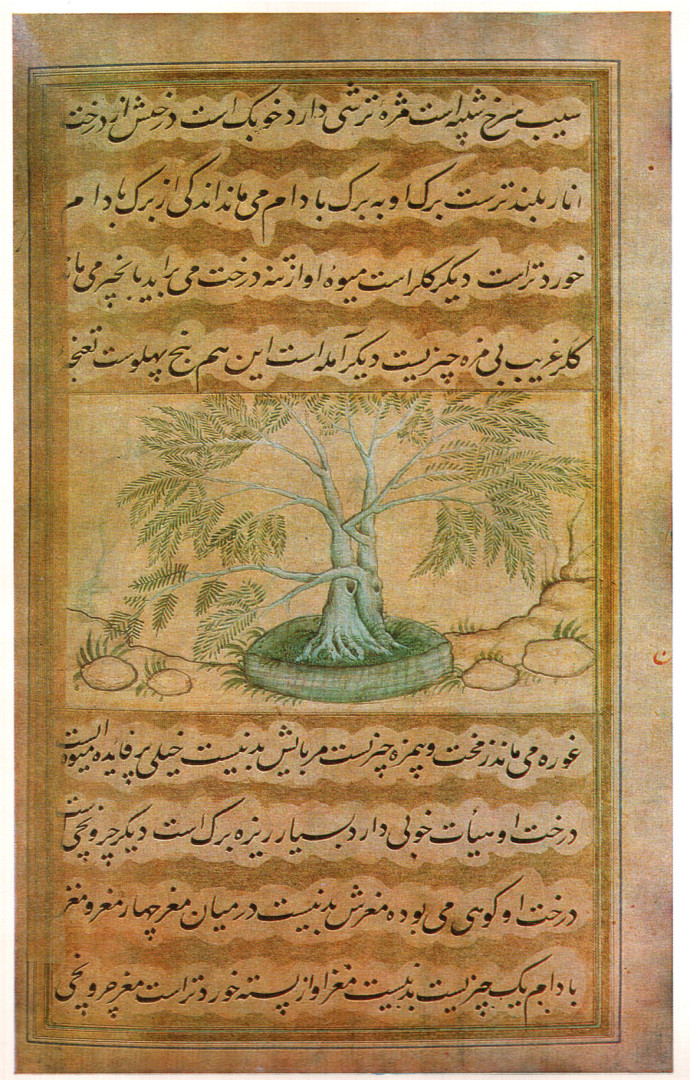 سیب سرخ شپیه است مزهٔ ترشی دارد خوبک است درختش از درخت
انار بلندترست برک او به برک بادام می ماند اندکی از برک بادام
خوردتر است دیکر کلر است میوهٔ او از تنه درخت می براید بانجیر می ماند
کلر غریب بی مزه چیزیست دیکر آمله است این هم پنج پهلوست
غوره می ماند زمخت و بیمزه چیزیست مربایش بد نیست خیلی پر فایده میوه ایست
درخت او هیأت خوبی دارد بسیار ریزه برک است دیکر چرونجی است
درخت او کوهی می بوده مغزش بد نیست در میان مغز چهارمغز و مغز
بادام یک چیزیست بد نیست مغز او از پسته خوردتر است مغز چرونجی